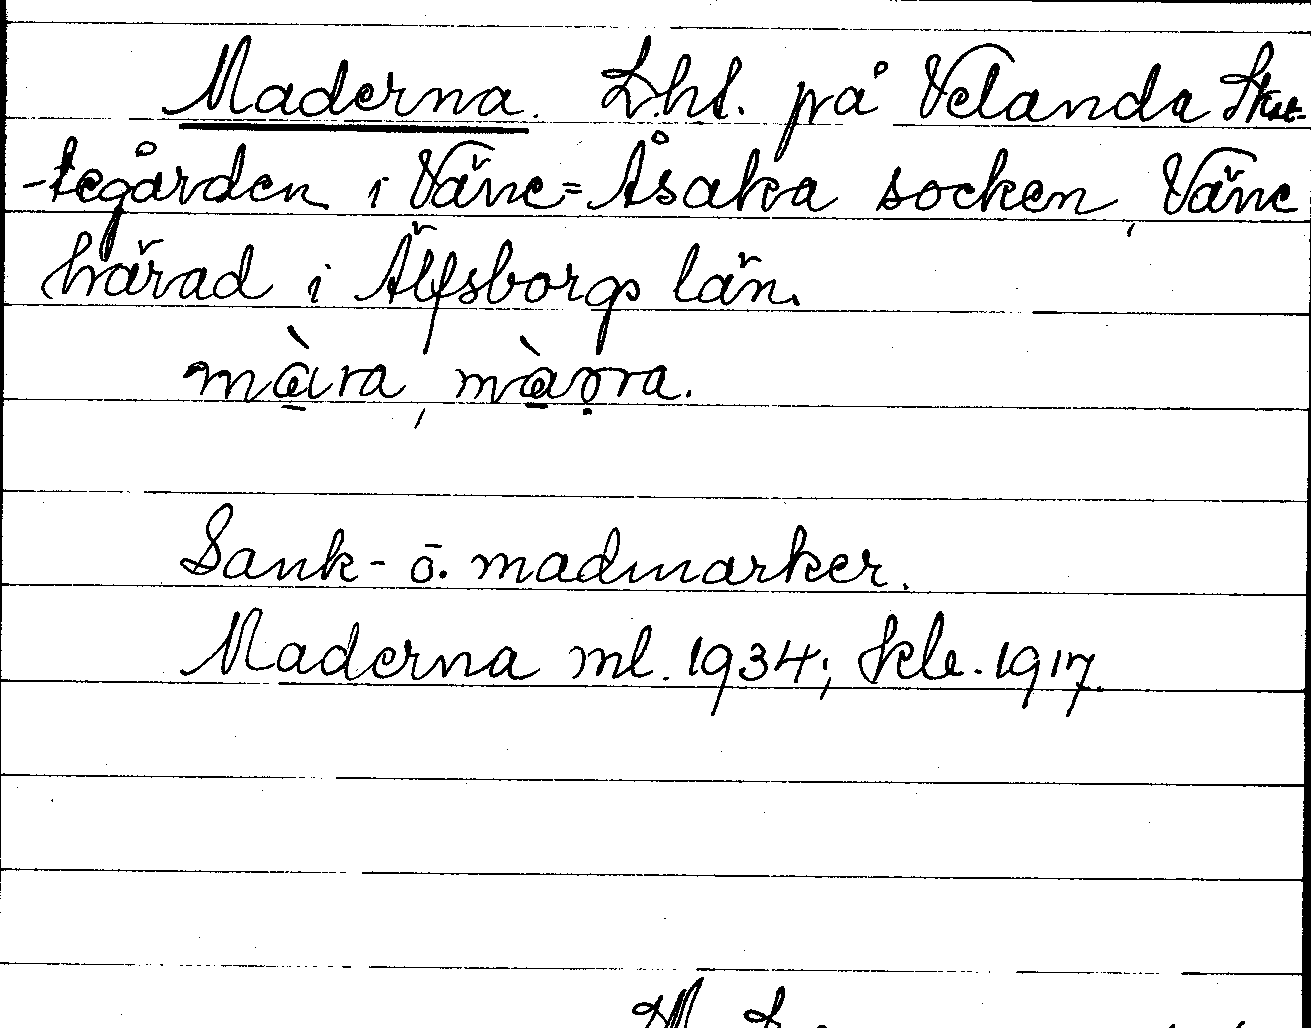 Maderna. Lht. på Velanda Skat-
-tegården i Väne=Åsaka socken, Väne
härad i Älfsborgs län.
Sank- o. madmarker.
Maderna ml. 1934; Skle. 1917.